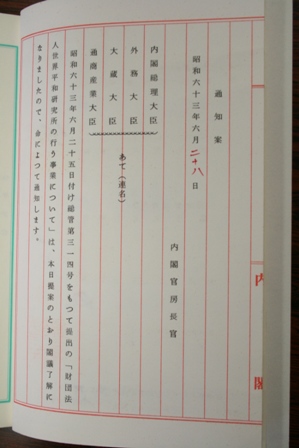 通知案
昭和六十三年六月二十八日
内閣官房長官
内閣総理大臣
外務大臣
大蔵大臣
通商産業大臣
あて(連名)
昭和六十三年六月二十五日付け総管第三一四号をもつて提出の「財団法
人世界平和研究所の行う事業について」は、本日提案のとおり閣議了解に
なりましたので、命によつて通知します。
内閣